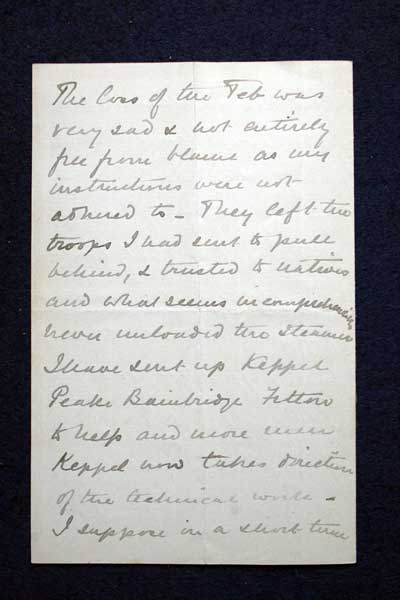 The loss of the Teb was
very sad & not entirely
free from blame as my
instructions were not
adhered to - They left the
troops I had sent to pull
behind, & trusted to natives
and what seems incomprehensible
never unloaded the Steamer
I have sent up Keppel
Peake Bainbridge Fitton
to help and more men
Keppel now takes direction
of the technical work -
I suppose in a short time